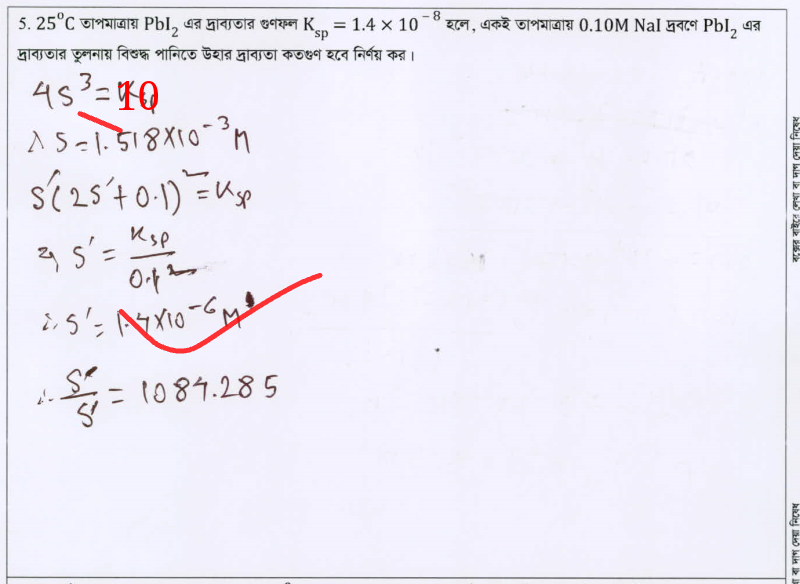 5. 25⁰C তাপমাত্রায় PbI₂ এর দ্রাব্যতার গুণফল Kₛₚ = 1.4 × 10⁻⁸ হলে, একই তাপমাত্রায় 0.10M NaI দ্রবণে PbI₂ এর
দ্রাব্যতার তুলনায় বিশুদ্ধ পানিতে উহার দ্রাব্যতা কতগুণ হবে নির্ণয় কর।
4S³ = Kₛₚ
10
∴ S = 1.518×10⁻³ M
S′(2S′+0.1)² = Kₛₚ
⇒ S′ = Kₛₚ / 0.1²
∴ S′ = 1.4×10⁻⁶ M
∴ S/S′ = 1084.285
বক্সের বাইরে লেখা বা দাগ দেয়া নিষেধ
বা দাগ দেয়া নিষেধ